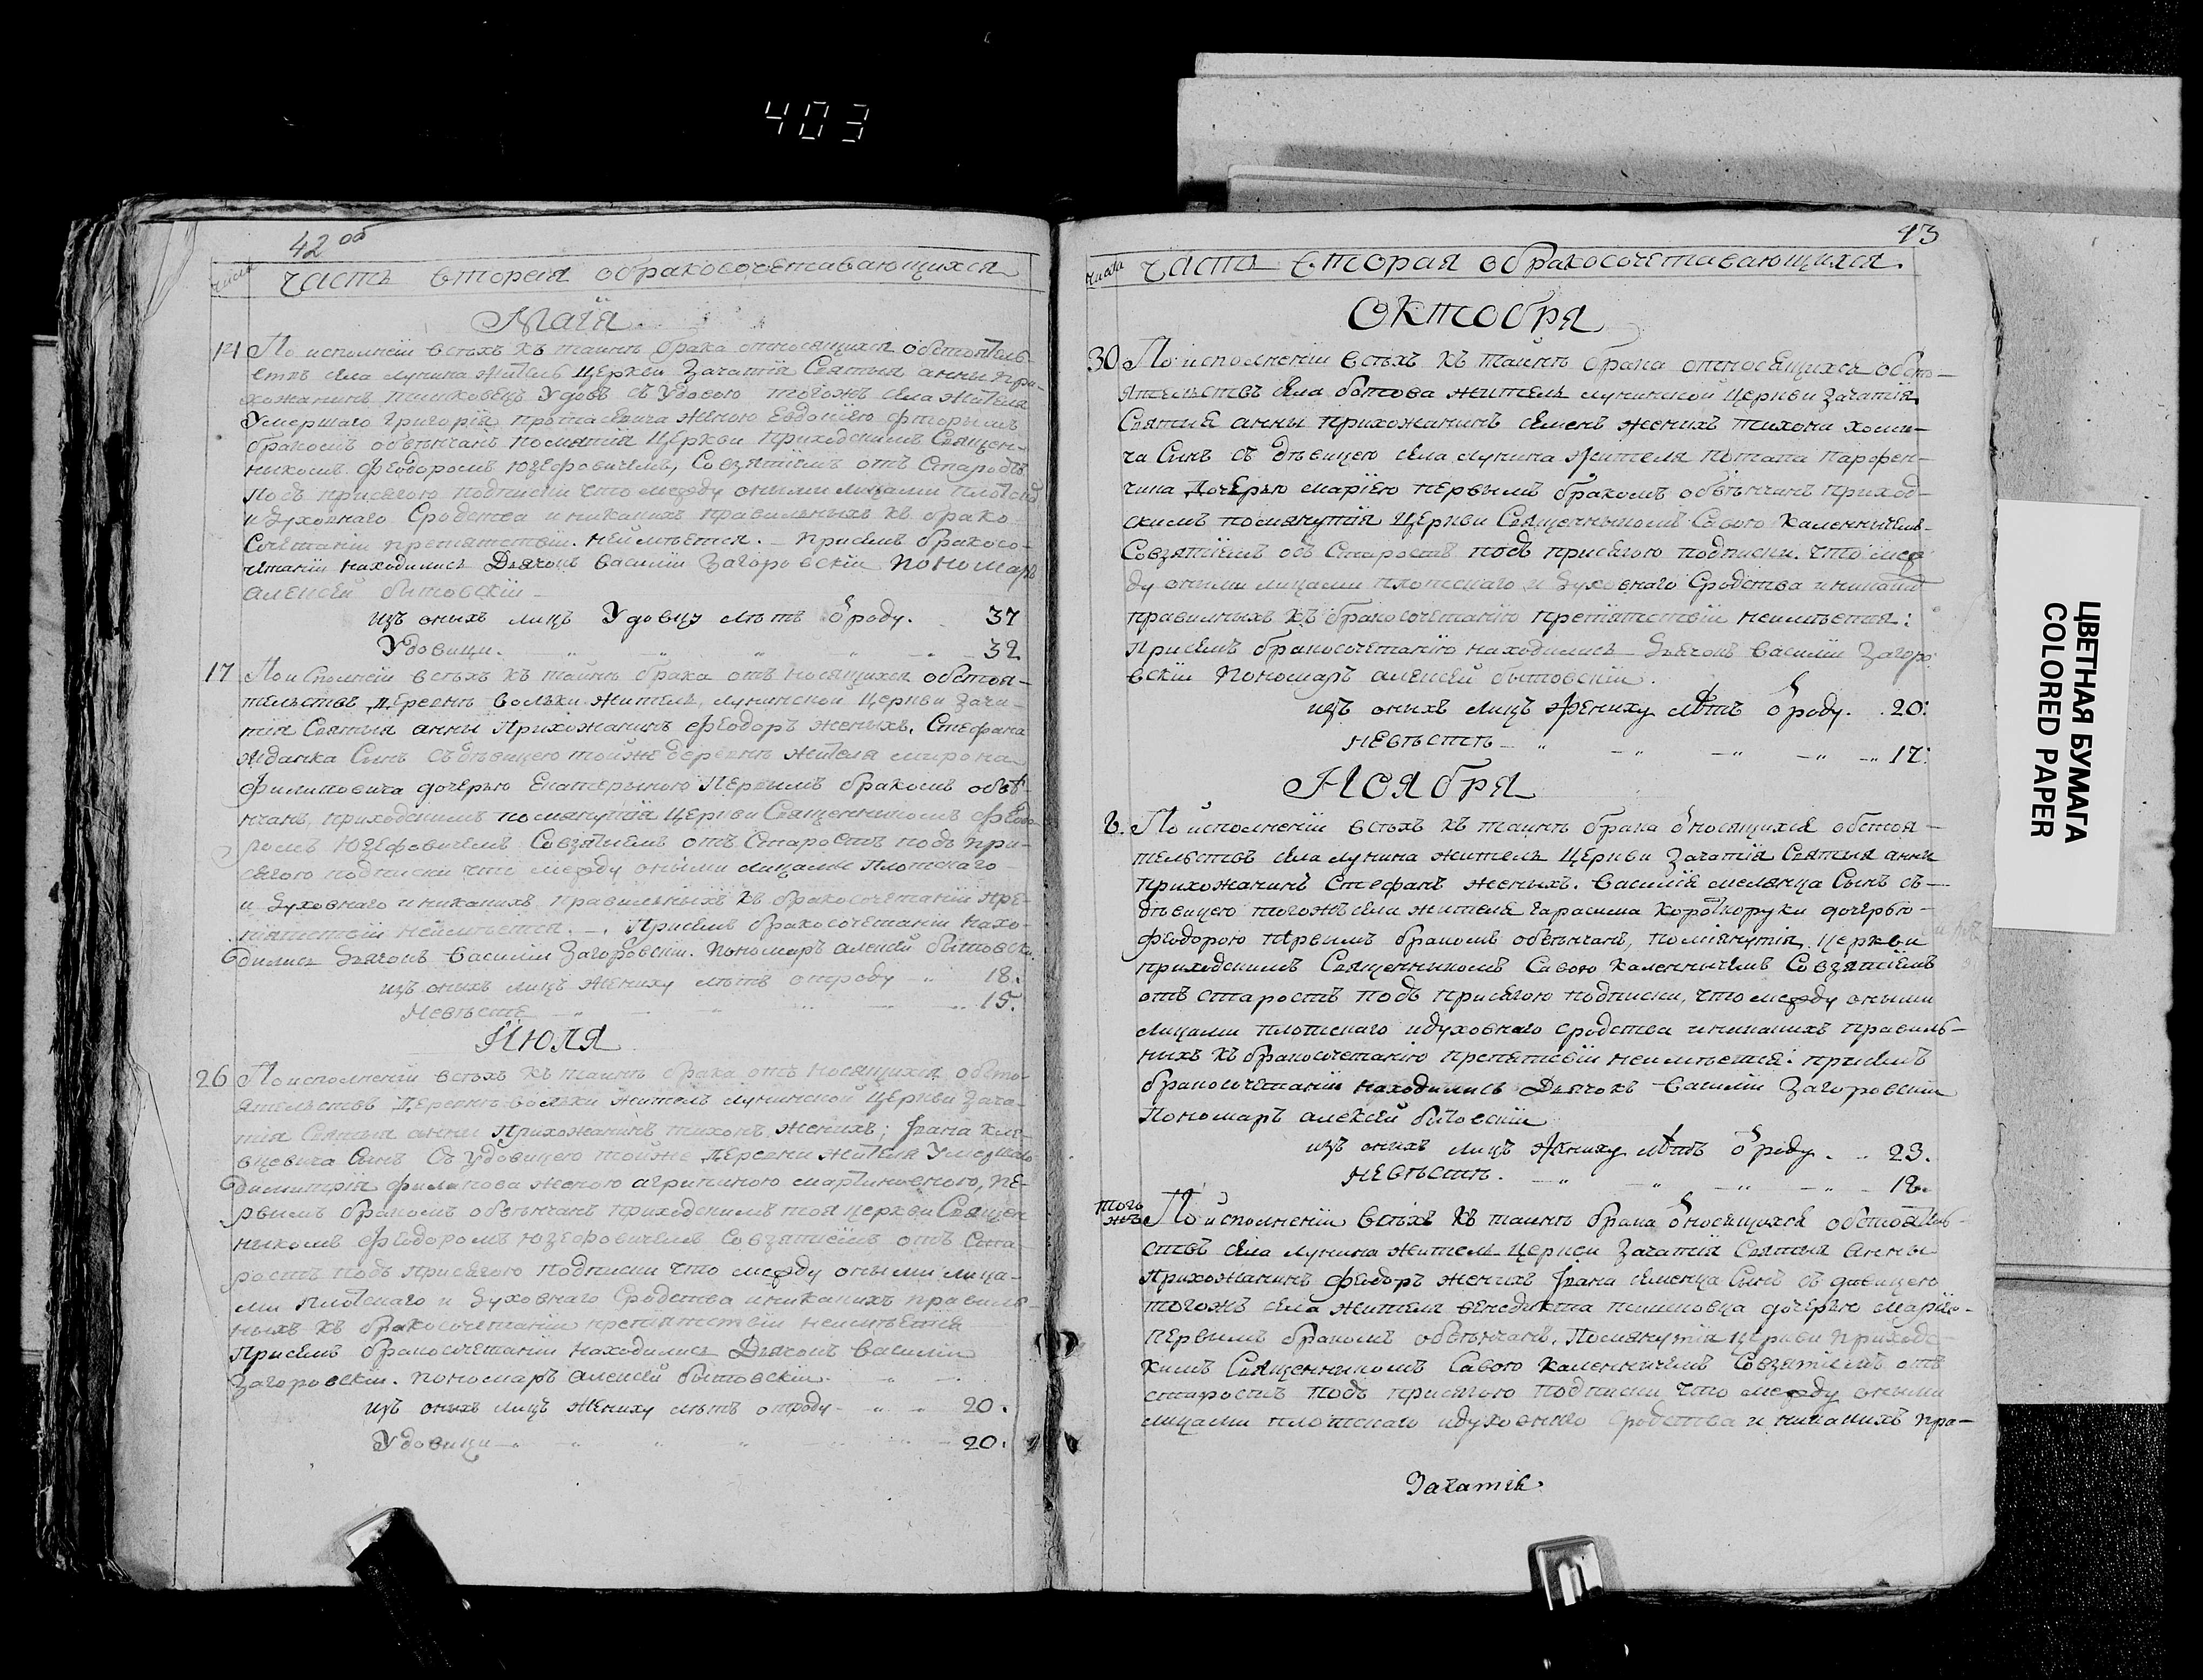 403
42 об
числа
часть вторая обракосочетавающихся
Маія
14 По исполненіи встьхъ къ таинѣ брака относящихся обстоятель-
ствъ села лунина житель Церкви Зачатія Святыя анны при-
хожанинъ Удовъ съ Удовою тогожъ села жителя
Умершаго Григорія протасевича женою Евдокіею фторымъ
бракомъ обвѣнчанъ Церкви приходскимъ Священ-
никомъ феодоромъ юзефовичемъ, Совзятіемъ отъ Старостъ
подъ присягою подписки что между оными лицами
и духовнаго Сродства иникакихъ правильныхъ къ брако
Сочетанію препятствіи неимѣется. – присемъ бракосо-
четаніи находились Дьячокъ василіи Загоровскіи Пономаръ
алексей битовскіи –
изъ оныхъ лицъ Удовцу лѣтъ ѿроду. . 37
Удовици. 32
17 По исполненіи встьхъ къ таинѣ брака отъ носящихся обстоя-
тельствъ деревни вольки житель, лунинской Церкви Зача-
тія Святыя анны Прихожанинъ феодоръ женыхъ, Стефана
жданка Сынъ съ дѣвицею тойже деревнѣ жителя мирона
Филиповича дочерью Екатерыною Первымъ бракомъ обвѣ-
нчанъ, приходскимъ помянутія Церкви Священникомъ фео-
ромъ Юзефовичемъ Совзятіемъ отъ Старостъ подъ при-
сягою подписки что между оными лицами Плотскаго
и духовнаго иникакихъ правильныхъ къ бракосочетаніи пре-
пятствіи неимѣется. –. Присемъ бракосочетаніи нахо-
дились Дьячокъ василіи Загоровскіи. Пономаръ алексей битовскіи.
изъ оныхъ лицъ жениху лѣтъ отроду „ 18.
Невѣстѣ 15.
Июля
26 По исполненіи встьхъ къ таинѣ брака отъ носящихся обсто-
ятельствъ Деревнѣ вольки житель лунинской Церкви Зача-
тія Святыя анни Прихожанинъ тихонъ женихъ; Ивана
Сынъ Съ Удовицею тойже деревни жителя Умершаго
димитрія филипова женою агрипиною мартиновною, пе-
рвымъ бракомъ обвѣнчанъ приходскимъ тоя церкви Священ
никомъ Феодоромъ юзефовичемъ Совзятіемъ отъ Ста-
ростъ подъ присягою подписки что между оными лица-
ми плотскаго и духовнаго Сродства иникакихъ правиль-
ныхъ къ бракосочетаніи препятствіи неимѣется
Присемъ бракосочетаніи находились Дьячокъ василіи
Загоровскіи. пономаръ алексей битовскіи.
изъ оныхъ лицъ жениху лѣтъ отроду 20.
Удовици 20.
43
числа
часть вторая обракосочетавающихся.
Октобря
30 По исполненіи встьхъ къ таинѣ брака относящихся обсто-
ятельствъ села ботова житель лунинской Церкви Зачатія
Святія анны прихожанинъ семенъ женихъ тихона хоми-
ча Сынъ съ дѣвицею села лунина жителя потапа парфен-
чика дочерью маріею первымъ бракомъ обвѣнчанъ приход-
скимъ помянутія Церкви Священныкомъ Савою каленничемъ.
Совзятіемъ отъ Старостъ подъ присягою подписки. что меж
ду оними лицами плотскаго и духовнаго Сродства иникаких
правильныхъ къ бракосочетанію препятствіи неимѣется:
Присемъ бракосочетанію находились дьячокъ василіи Загоро
вскіи Пономаръ алексей битовскіи.
изъ онихъ лицъ жениху лѣтъ ѿроду. . 20:
невѣстѣ 17:
Ноября
8. По исполненіи встьхъ къ таинѣ брака ѿносящихся обстоя-
тельствъ села лунина житель Церкви Зачатія Святыя анни
прихожанинъ Стефанъ женыхъ. василія мелянца Сынъ съ –
дѣвицею тогожъ села жителя гарасима короткоруки дочерью –
феодорою первымъ бракомъ обвѣнчанъ, помянутія церкви
приходскимъ Священныкомъ Савою каленничемъ Совзятіемъ
отъ старостъ подъ присягою подписки, что между оными
лицами плотскаго идуховнаго сродства иникакихъ правиль-
нихъ къ бракосочетанію препятсвіи неимѣется: присемъ
бракосочетаніи находились Дьячокъ василіи Загоровскіи
Пономаръ алексей битовскіи
изъ онихъ лицъ жениху лѣтъ ѿроду. . 23.
невѣстѣ. 18.
того
жъ По исполненіи встьхъ къ таинѣ брака ѿносящихся обстоятель-
ствъ села лунина житель Церкви Зачатія Святыя Анны
прихожанинъ феодоръ женихъ Ивана семенца Сынъ съ дѣвицею
тогожъ села жителя венедикта дочерью маріею-
первымъ бракомъ обвѣнчанъ. Помянутія Церкви приходс-
кимъ Священникомъ Савою каленничемъ Совзятіемъ отъ
старостъ подъ присягою подписки что между оными
лицами плотскаго идуховнаго сродства и никакихъ пра-
Зачатія
ЦВЕТНАЯ БУМАГА
COLORED PAPER